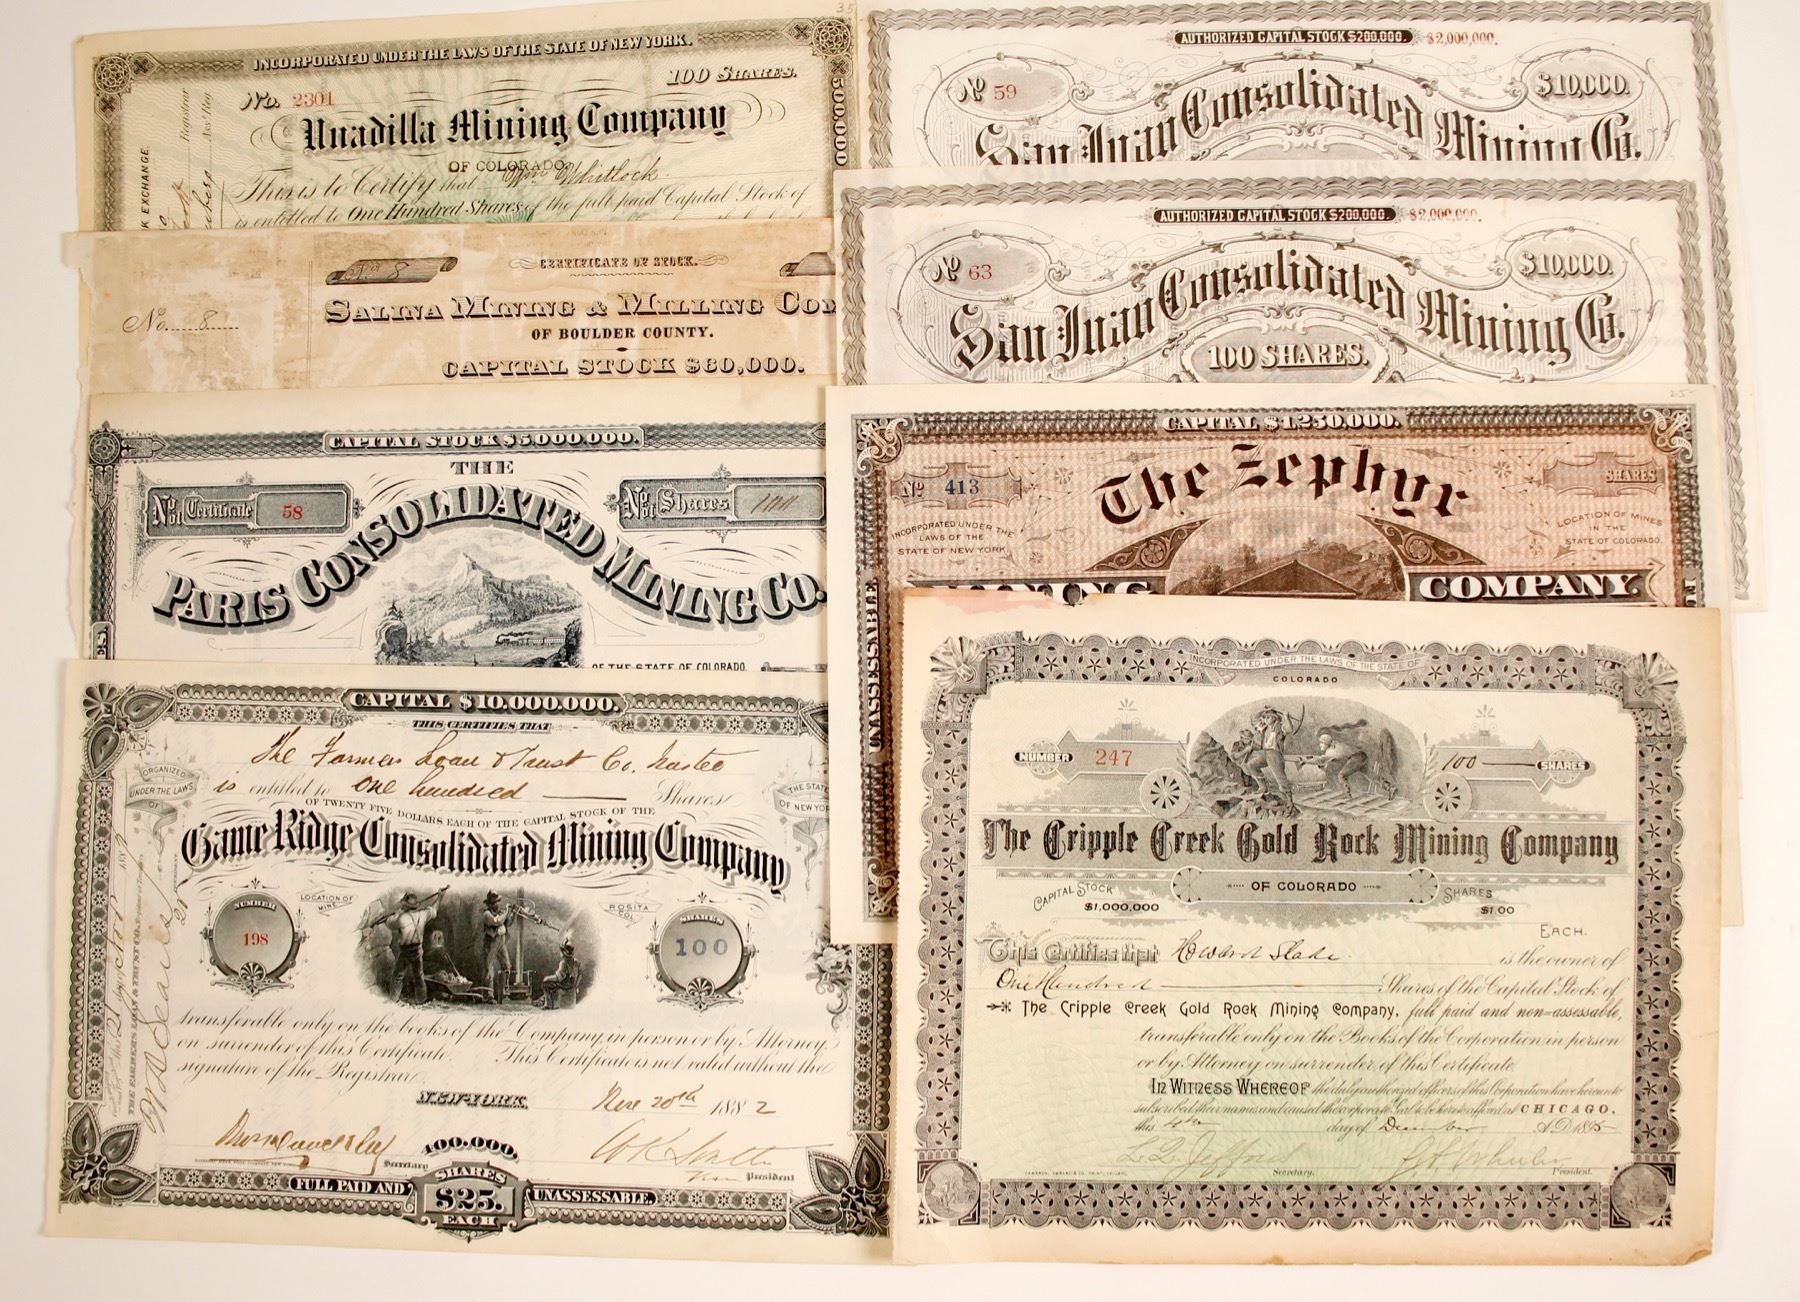 35
INCORPORATED UNDER THE LAWS OF THE STATE OF NEW YORK.
100 SHARES.
No. 2301
Unadilla Mining Company
OF COLORADO
This is to Certify that Wm Whitlock
is entitled to One Hundred Shares of the full paid Capital Stock of
500,000
Registrar
K EXCHANGE.
CERTIFICATE OF STOCK.
No 8
No. 8
SALINA MINING & MILLING COM
OF BOULDER COUNTY.
CAPITAL STOCK $60,000.
CAPITAL STOCK $5,000,000.
THE
No of Certificate 58
No of Shares 100
PARIS CONSOLIDATED MINING CO.
OF THE STATE OF COLORADO.
CAPITAL $10,000,000.
THIS CERTIFIES THAT
The Farmers Loan & Trust Co. Trustee
is entitled to One hundred Shares
ORGANIZED UNDER THE LAWS OF
THE STATE OF NEW YOR
OF TWENTY FIVE DOLLARS EACH OF THE CAPITAL STOCK OF THE
Game Ridge Consolidated Mining Company
LOCATION OF MINE
ROSITA COL.
NUMBER
198
SHARES
100
transferable only on the books of the Company in person or by Attorney
on surrender of this Certificate. This Certificate is not valid without the
signature of the Registrar.
NEW-YORK,
20th 1882
Secretary
President
400,000.
SHARES
FULL PAID AND $25. UNASSESSABLE.
EACH
AUTHORIZED CAPITAL STOCK $200,000. $2,000,000.
No 59
$10,000.
San Juan Consolidated Mining Co.
AUTHORIZED CAPITAL STOCK $200,000. $2,000,000.
No 63
$10,000.
San Juan Consolidated Mining Co.
100 SHARES.
25
CAPITAL $1,250,000.
The Zephyr
No 413
SHARES
INCORPORATED UNDER THE
LAWS OF THE
STATE OF NEW YORK
LOCATION OF MINES
IN THE
STATE OF COLORADO.
MINING
COMPANY.
UNASSESSABLE
INCORPORATED UNDER THE LAWS OF THE STATE OF
COLORADO
NUMBER 247
100 SHARES
The Cripple Creek Gold Rock Mining Company
OF COLORADO
CAPITAL STOCK
$1,000,000
SHARES
$1.00
EACH.
This Certifies that Howard Slade is the owner of
One Hundred Shares of the Capital Stock of
The Cripple Creek Gold Rock Mining Company, full paid and non-assessable,
transferable only on the Books of the Corporation in person
or by Attorney on surrender of this Certificate.
IN WITNESS WHEREOF the duly authorized officers of this Corporation have hereunto
subscribed their names and caused the corporate Seal to be hereto affixed at CHICAGO,
this 4th day of December A.D. 1895
Secretary.
President.